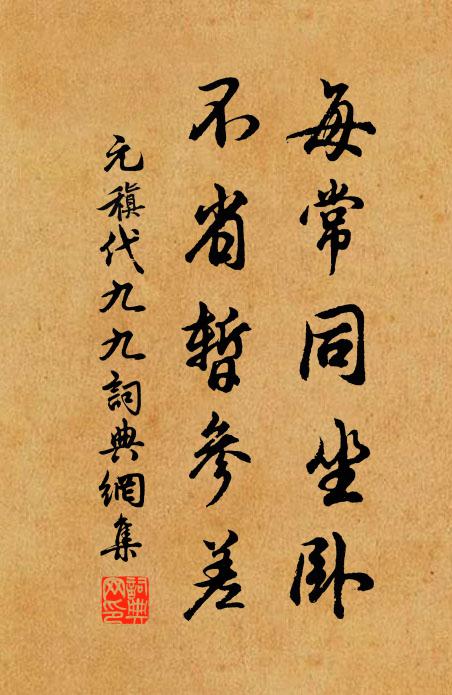 每常同坐卧
不省暫參差
元稹代九九詞典網集
詞典网印